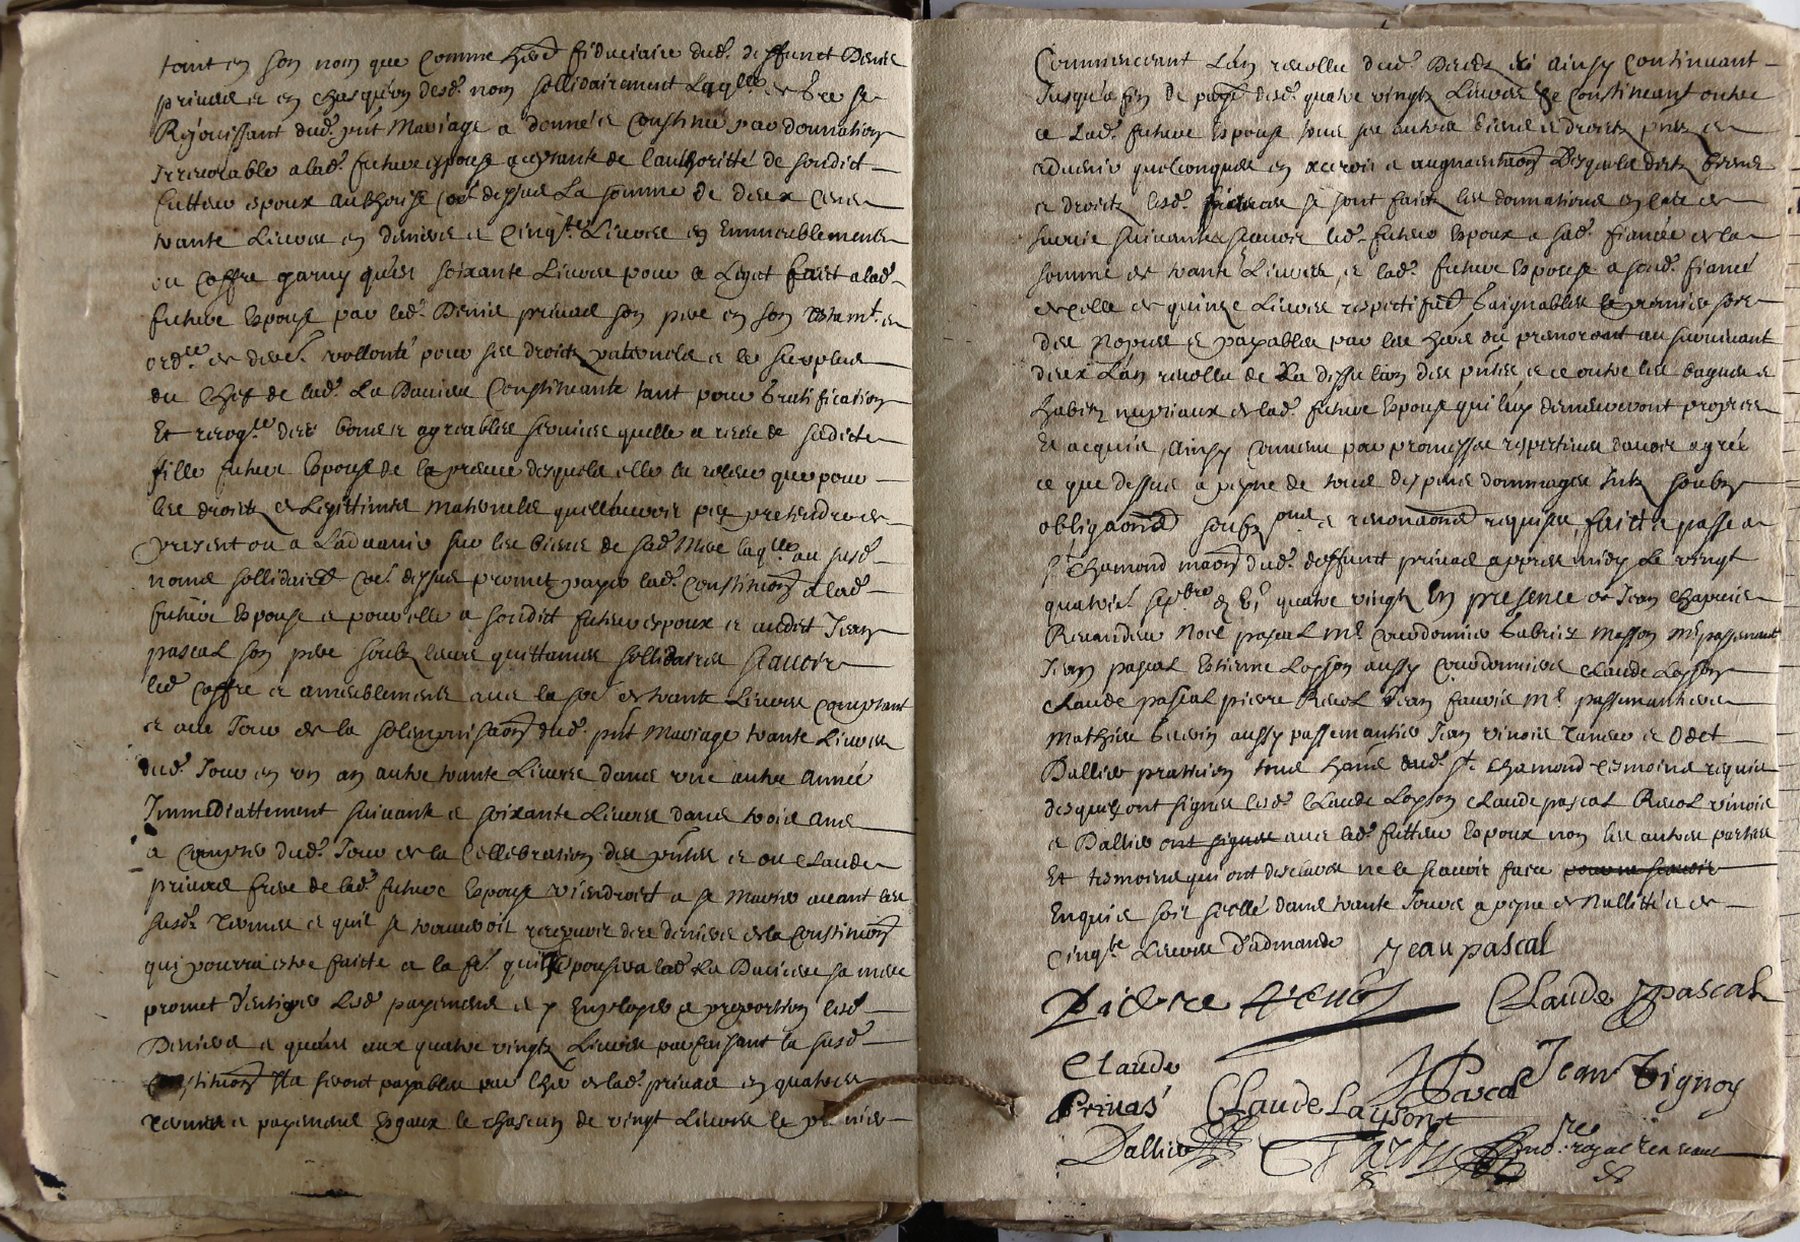 tant en son nom que comme herᵉ fiduciaire dudᵗ deffunct Denis
privas et en chasqu'un desdᵗ nom sollidairement Laqlle de gre se
Rejouissant dudᵗ pnt Mariage a donné et constitué par donnation
Irrevocable a ladᵗ future espouse acceptante de l'authoritté de sondict
futteur espoux authorisé coe dessus La somme de deux cens
trante Livres en deniers et cinqte Livres en Emmeublements
ou coffre garny qu'est soixante Livres pour le Legat faict a ladᵗ
future Espouse par ledᵗ Denis privas son pere en son testamᵗ et
ordce de dereᵉ vollonté pour ses droitz paternels et le surplus
du chef de ladᵗ La Daviere Constituante tant pour gratification
Et recogce des bons et agreables services quelle a receu de sadicte
fille future Espouse de la preuve desquels elle la releve que pour
les droitz et Legitimes Maternelle quell'auroit peu pretendre de
present ou a L'advenir sur les biens de sadᵗ Mere laqlle au susdᵗ
noms sollidairᵉ coe dessus promet payer ladᵗ constituon a ladᵗ
future Espouse et pour elle a sondit futeur espoux et audit Jean
pascal son pere soubz leurs quittances sollidaires scavoir
led coffre et ameublements avec la soe de trante Livres comptant
et au Jour de la solempnisaon dudᵗ pnt Mariage trante Livres
dudᵗ Jour en un an autre trante Livres dans une autre année
Immediattement suivante et soixante Livres dans trois ans
a compter dudᵗ Jour de la Cellebration des pntes et ou Claude
privas frere de ladᵗ future Espouse viendroict a se Marier avant les
susdᵗ termes et quil se trouveroit recepvoir des deniers de la constituon
qui pourra estre faicte a la fe qui Espousera ladᵗ La Daviere sa mere
promet d'entiper Lesdᵗ payements et y Employer a proportion lesdᵗ
Deniers et quant aux quatre vingtz Livres parfaisant la susdᵗ
constituon Ila seront payables par lher de ladᵗ privas en quatre
termes et payements Esgaux le chascun de vingt Livres le premier
Commencant Lan revollu dudᵗ Decedz et ainsy continuant
Jusqu'a fin de paye desdᵗ quatre vingtz Livres se constituant outre
ce Ladᵗ future Espouse tous ses autres biens et droictz pntz et
advenir quelconques en accroix et augmentaon Desquels dictz biens
et droitz lesdᵗ se sont faictz les donnations en cas de
survie suivantes scavoir ledᵗ futeur Espoux a sadᵗ fiancée de la
somme de trante Livres et ladᵗ future Espouse a sondᵗ fiancé
de celle de quinze Livres respectifvᵗ gaignables le premier jour
des Nopces et payables par les hers du premorant au survivant
dieux L'an revollu de La dissolaon des pntes et ce outre les bagues et
habitz nuptiaux de ladᵗ future Espouse qui luy demeureront propres
Et acquis, Ainsy convenu par promesses respectives davoir agréé
ce que dessus a peyne de tous despens dommages Intz soubz
obligaons soubzons et renonaons requises, faict et passé a
St Chamond maon dudᵗ deffunct privas appres midy Le vingt
quatreᵉ sepbre gbi quatre vingtz En presence de Jean chapuis
Revandeur Noel pascal Mᵉ cordonnier Gabriel Masson Mᵉ passemant
Jean pascal Estienne Losson aussy cordonniers Claude Losson
Claude pascal pierre Riviol Jean favrie Mᵉ passemantiers
Mathieu Guerin aussy passemantier Jean vinois Tameur et Odet
Dallier pratticien tous hans dudᵗ St Chamond tesmoins requis
desquelz ont signes lesdᵗ Claude Losson Claude pascal Riviol vinois
et Dallier ont signes avec ledᵗ futteur Espoux non les autres parties
Et tesmoins qui ont desclairé ne le scavoir faire
Enquis soit scellé dans trante Jours a peyne de Nullitté et de
cinqte Livres d'admande Jean pascal
Claude pascal
Claude
Privas
Claude Lauson
Pascal
Jean Vignon
Dallier